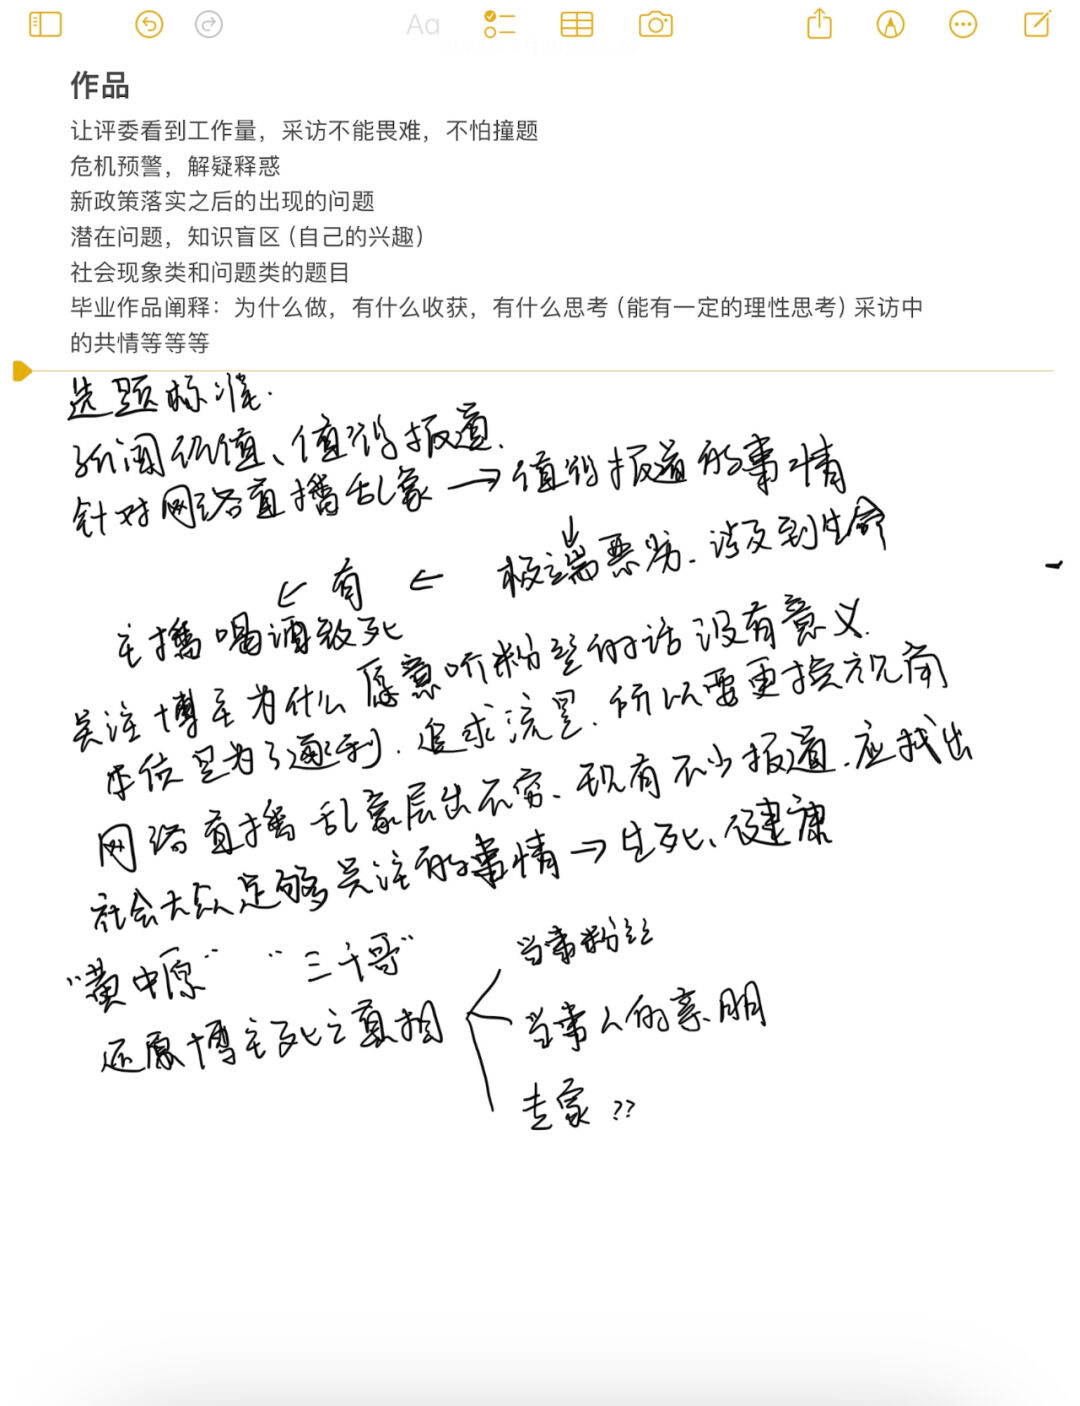 Aa
作品
让评委看到工作量，采访不能畏难，不怕撞题
危机预警，解疑释惑
新政策落实之后的出现的问题
潜在问题，知识盲区（自己的兴趣）
社会现象类和问题类的题目
毕业作品阐释：为什么做，有什么收获，有什么思考（能有一定的理性思考）采访中
的共情等等等
选题标准.
新闻价值、值得报道.
针对网络直播乱象 → 值得报道的事情
↓
← 有 ← 极端恶劣. 涉及到生命
主播喝酒致死
关注博主为什么愿意听粉丝的话没有意义.
单位是为了逐利. 追求流量. 所以要更换视角
网络直播乱象层出不穷、现有不少报道. 应找出
社会大众足够关注的事情 → 生死、健康
“黄中原” “三千哥”
还原博主死亡真相
当事粉丝
当事人的亲朋
专家 ??